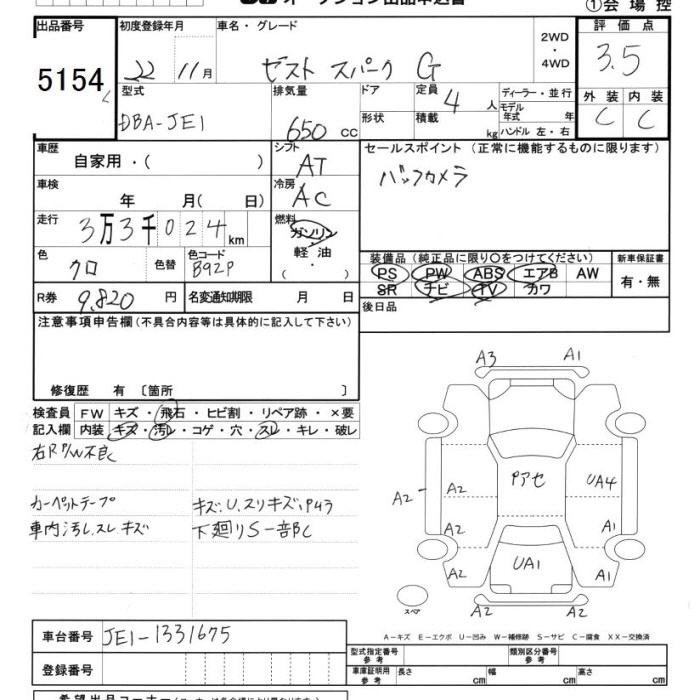 オークション出品申込書
①会場控
出品番号 初度登録年月 車名・グレード 2WD・4WD 評価点
5154 22 11月 ゼスト スパーク G 3.5
型式 排気量 ドア 定員 4人 ディーラー・並行 外装 内装
DBA-JE1 650cc 形状 積載 kg モデル年式 年 C C
ハンドル 左・右
車歴 自家用・( ) シフト AT セールスポイント (正常に機能するものに限ります)
車検 年 月(日) 冷房 AC バックカメラ
走行 3万3千024km 燃料 ガソリン
軽油
( ・ )
色 クロ 色替 色コード B92P 装備品(純正品に限り○をつけてください) 新車保証書
PS PW ABS エアB AW 有・無
R券 9,820円 名変通知期限 月 日 SR ナビ TV カワ
後日品
注意事項申告欄(不具合内容等は具体的に記入して下さい)
修復歴 有 〔箇所 〕
検査員 FW キズ・飛石・ヒビ割・リペア跡・×要
記入欄 内装 キズ・汚レ・コゲ・穴・スレ・キレ・破レ
右R P/W不良
カーペットテープ キズ.U.スリキズ.
車内汚レ.スレ.キズ 下廻りS一部C
A3 A1
A2 A2 Pアセ UA4
A2 A1
A2 UA1 A1
スペア A2 A2
A-キズ E-エクボ U-凹み W-補修跡 S-サビ C-腐食 XX-交換済
車台番号 JE1-1331675
型式指定番号 参考 類別区分番号 参考
登録番号 車庫証明用 参考 長さ cm 幅 cm 高さ cm